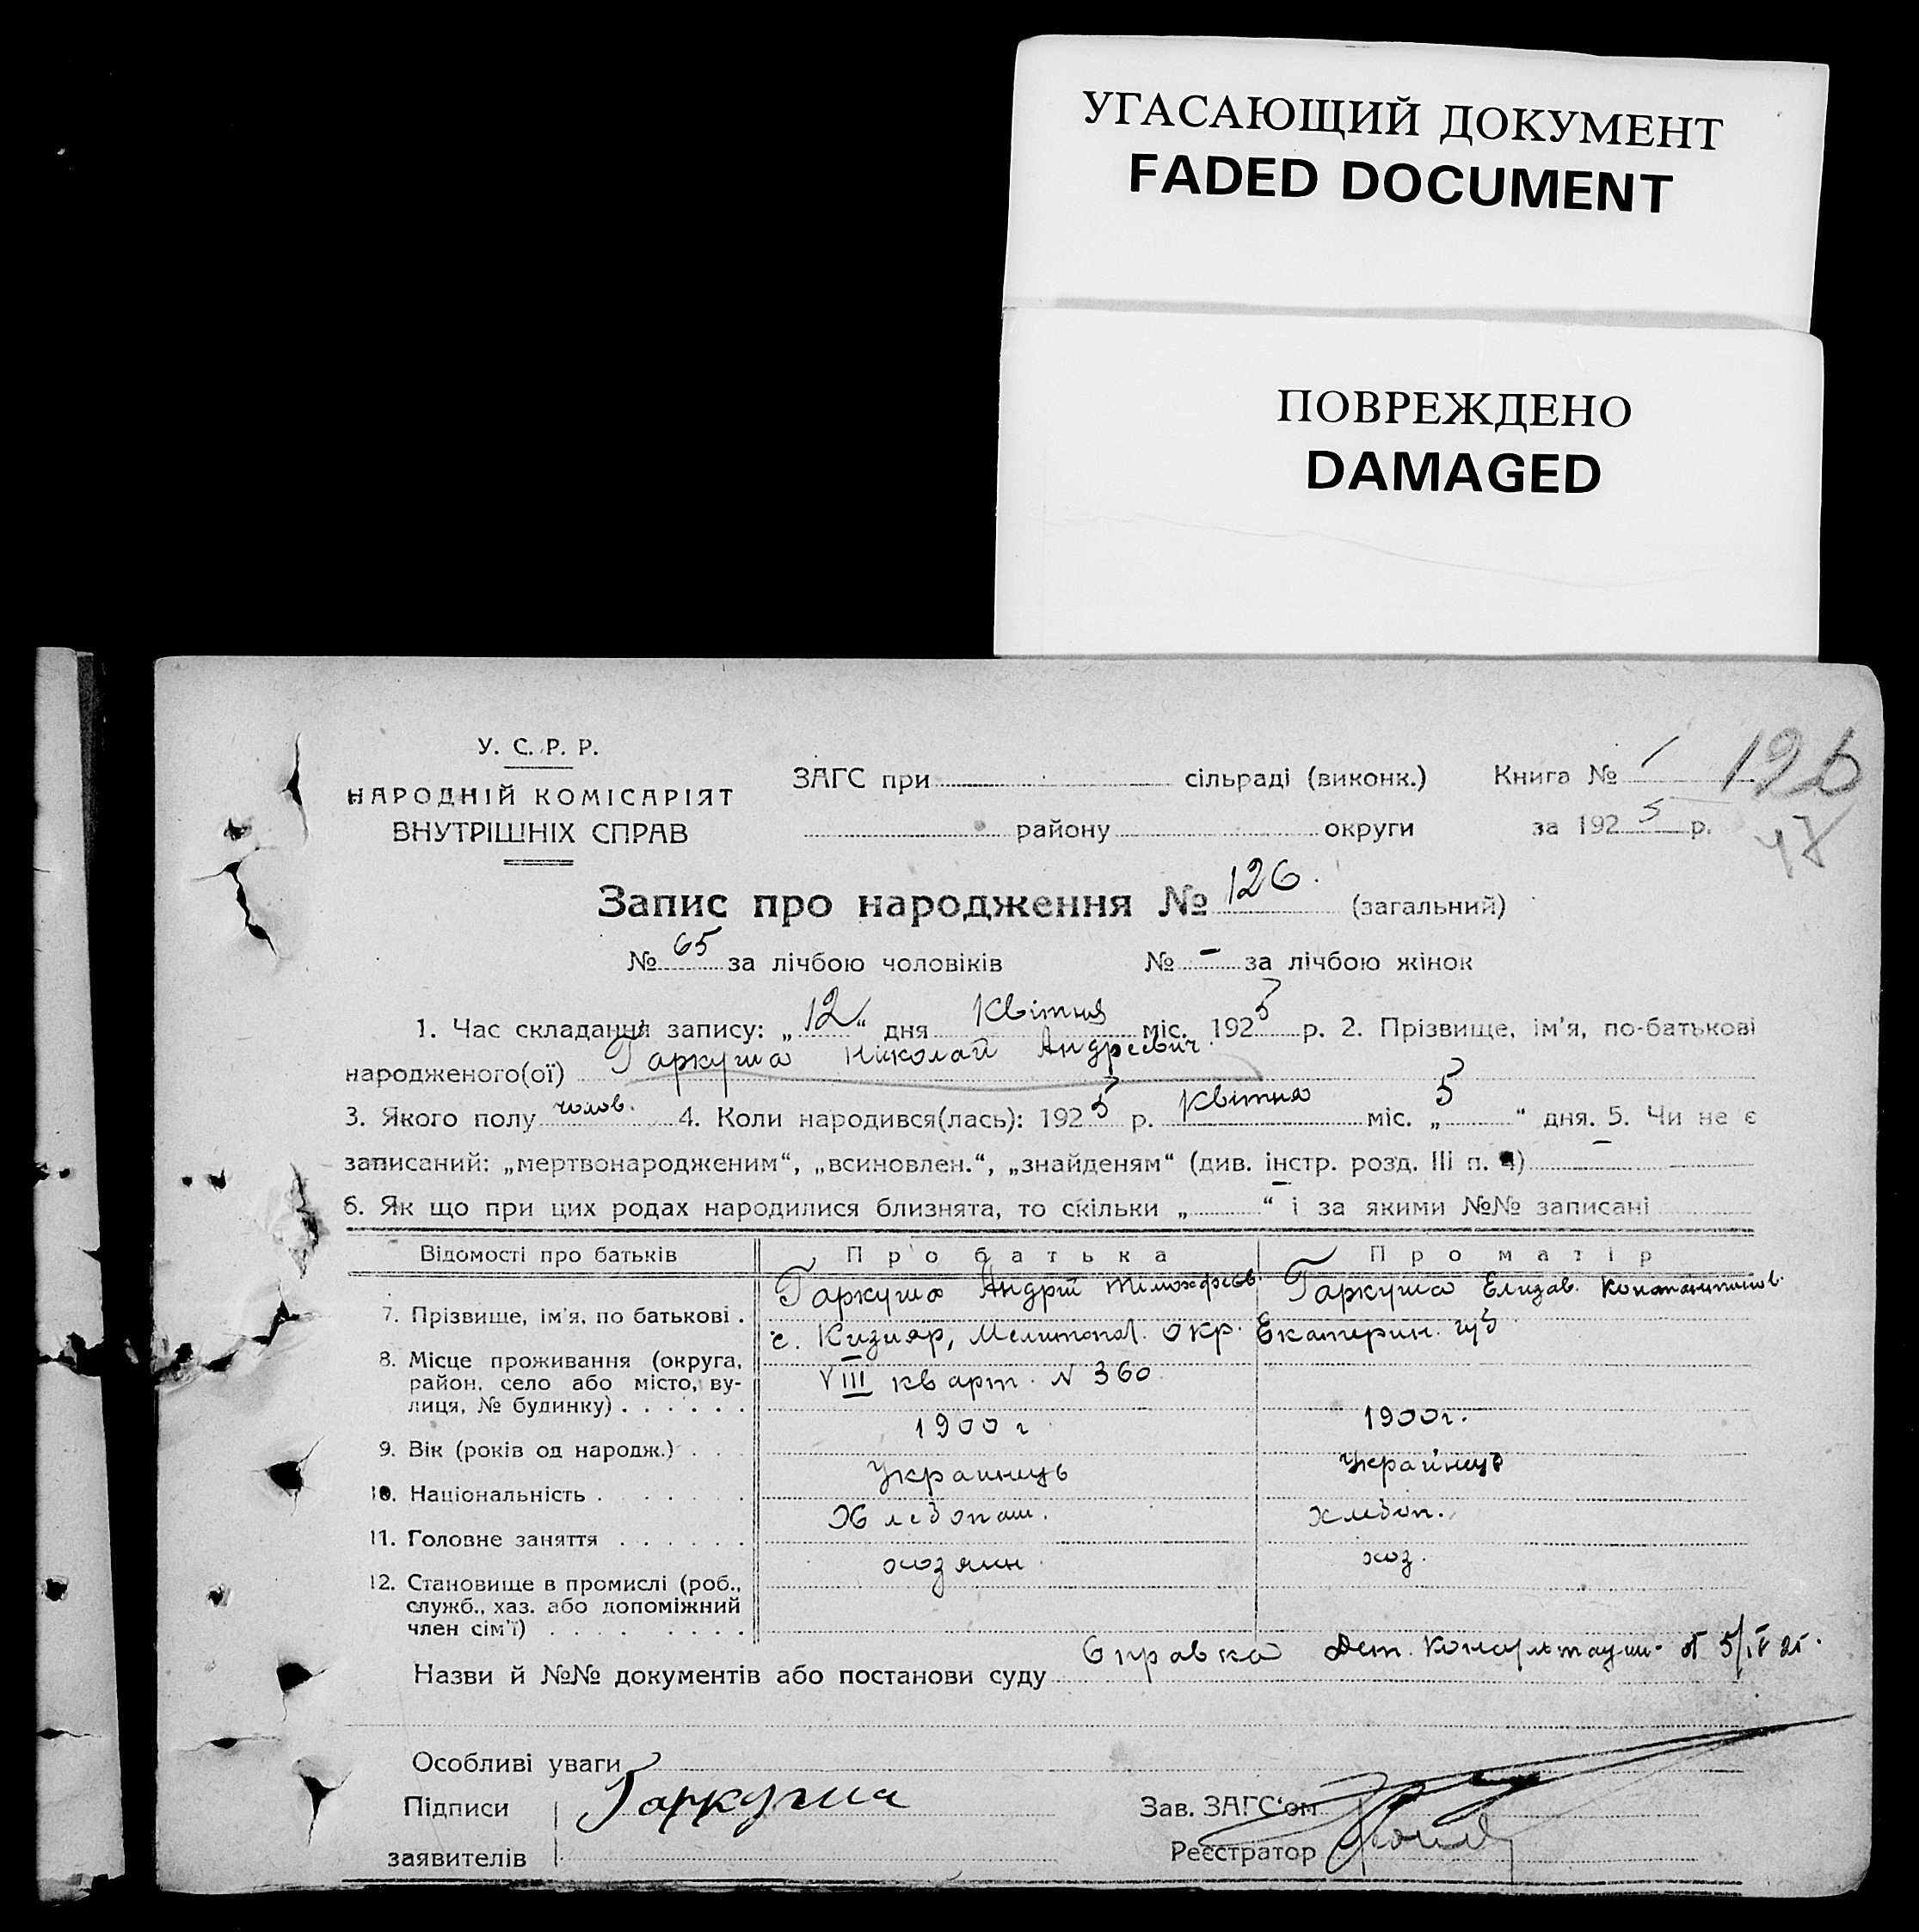 УГАСАЮЩИЙ ДОКУМЕНТ
FADED DOCUMENT
ПОВРЕЖДЕНО
DAMAGED
У. С. Р. Р.
НАРОДНІЙ КОМІСАРІЯТ
ВНУТРІШНІХ СПРАВ
ЗАГС при сільраді (виконк.)
району округи
Книга № 1 126
за 1925 р.
47
Запис про народження № 126. (загальний)
№ 65 за лічбою чоловіків № – за лічбою жінок
1. Час складання запису: „12“ дня Квітня міс. 1925 р. 2. Прізвище, ім'я, по-батькові
народженого(ої) Гаркуша Николай Андреевич.
3. Якого полу чолов. 4. Коли народився(лась): 1925 р. Квітня міс. „5“ дня. 5. Чи не є
записаний: „мертвонародженим“, „всиновлен.“, „знайденям“ (див. інстр. розд. III п. 4) –
6. Як що при цих родах народилися близнята, то скільки „–“ і за якими №№ записані
Відомості про батьків Про батька Про матір
7. Прізвище, ім'я, по батькові . Гаркуша Андрій Тимофеев. Гаркуша Елизав. Константинов.
8. Місце проживання (округа, район, село або місто, вулиця, № будинку) . . . . . . с. Кизияр, Мелитопол. окр. Екатерин. губ
VIII кварт. N 360.
9. Вік (років од народж.) . . . 1900 г 1900 г.
10. Національність . . . . . . Украинець Украінець
11. Головне заняття . . . . . . Хлебопаш. хлебоп.
12. Становище в промислі (роб., служб., хаз. або допоміжний член сім'ї) . . . . . . . . хозяин. хоз.
Назви й №№ документів або постанови суду Справка Дет. Консультации от 5/IV 25.
Особливі уваги
Підписи Гаркуша Зав. ЗАГС'ом
заявителів Реєстратор